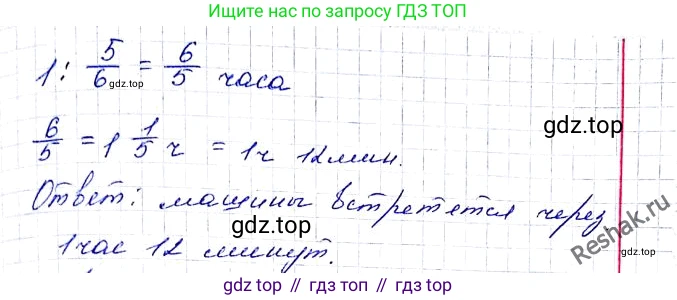 Ищите нас по запросу ГДЗ ТОП
1 : 5/6 = 6/5 часа
gdz.top
6/5 = 1 1/5 ч = 1ч 12мин.
gdz.top
Ответ: машины встретется через
gdz.top
1час 12 минут.
Reshak.ru
gdz.top // гдз.топ // гдз топ